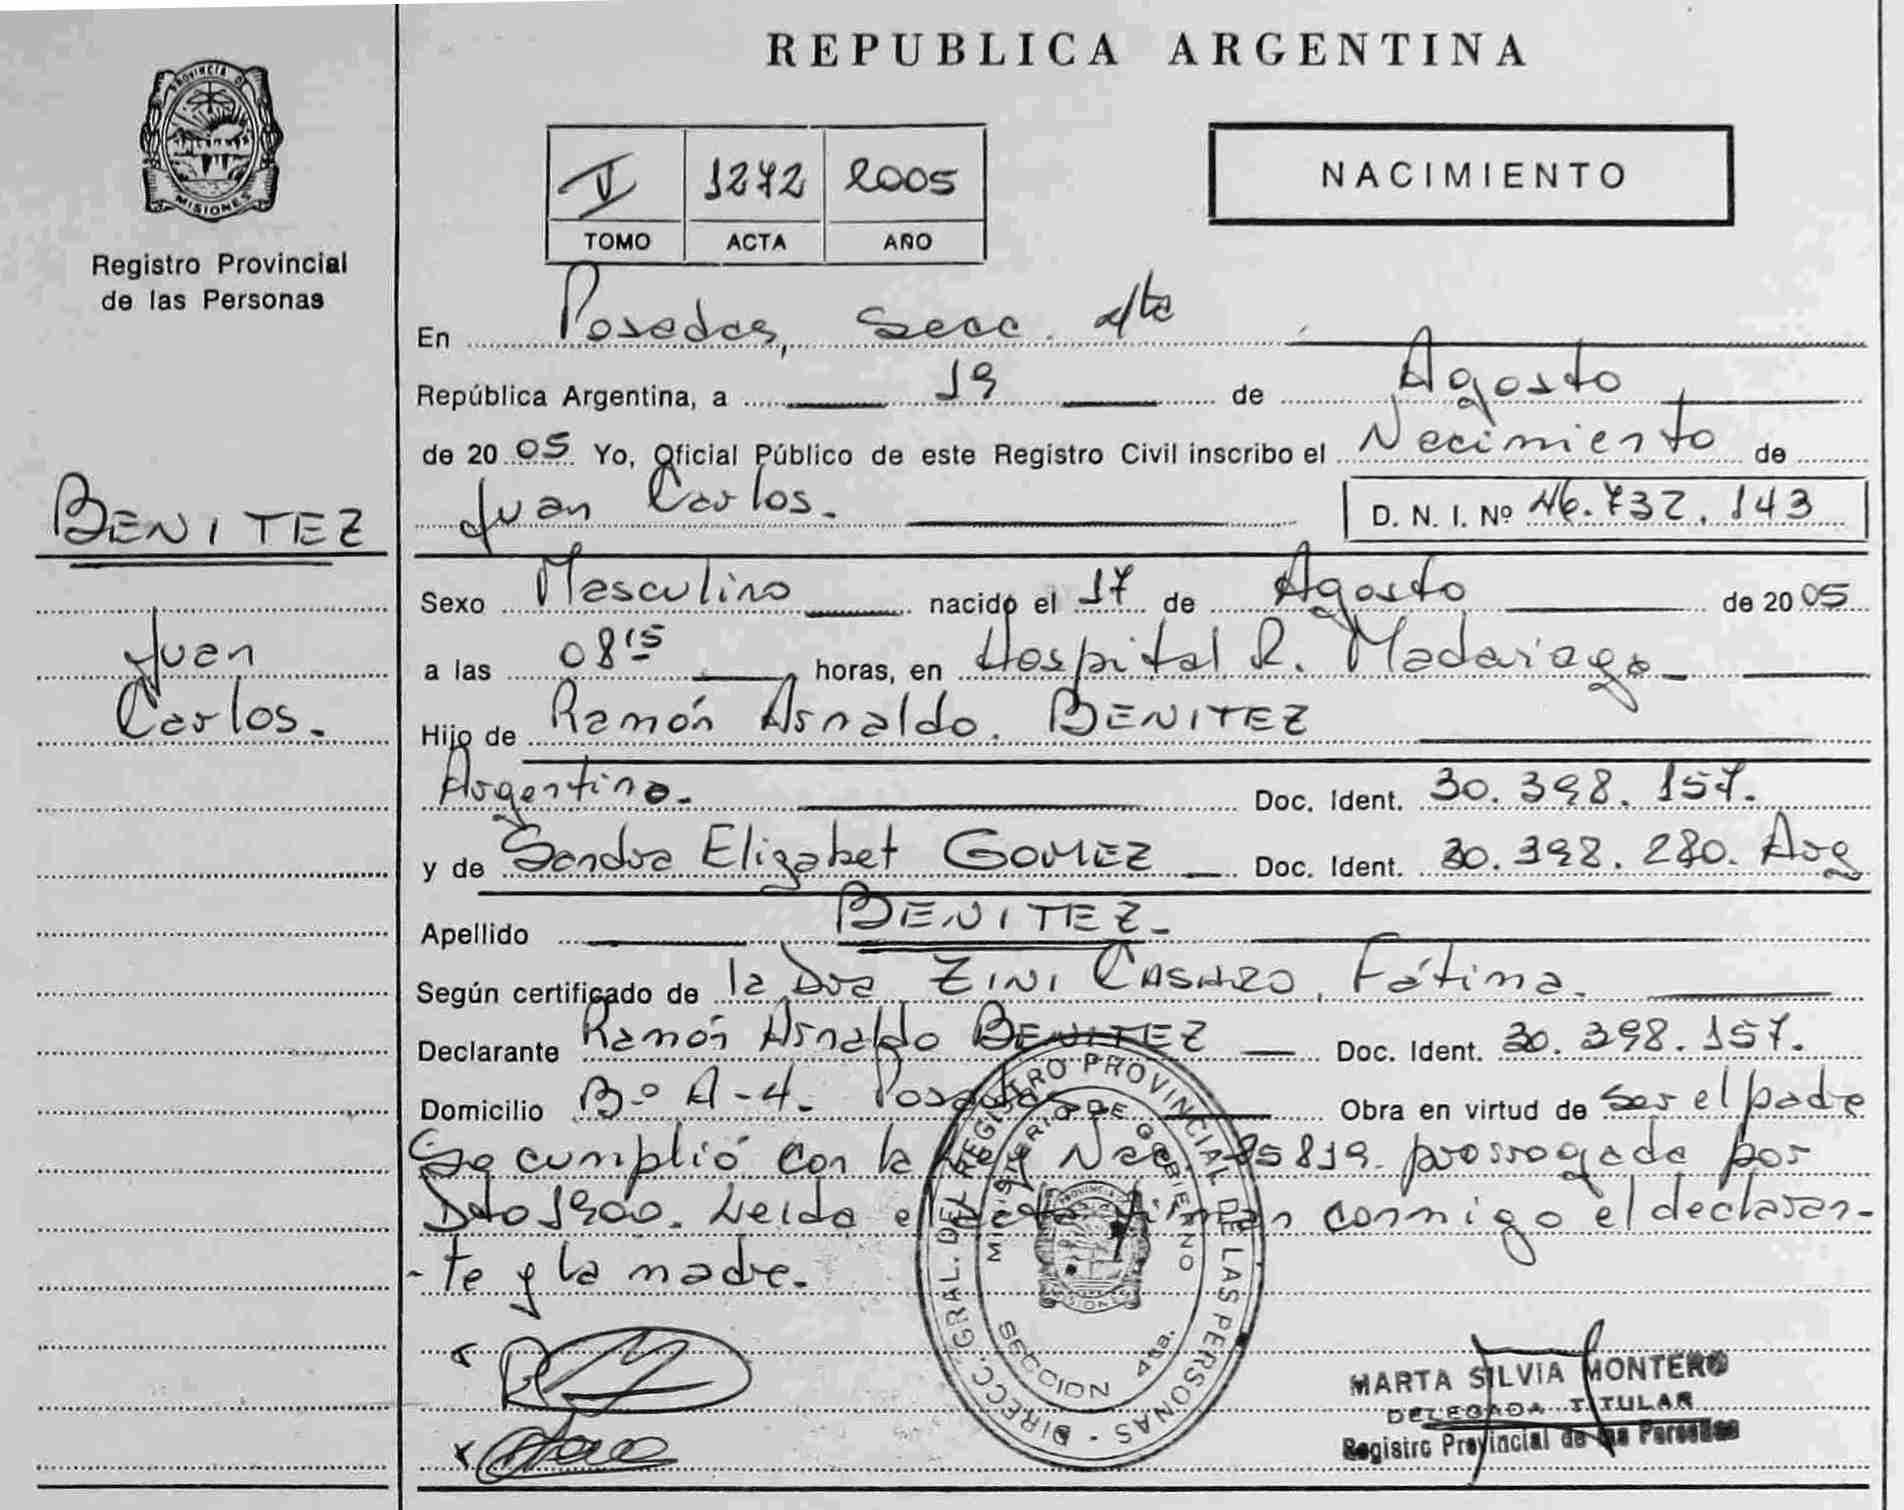 REPUBLICA ARGENTINA
PROVINCIA DE
MISIONES
Registro Provincial
de las Personas
NACIMIENTO
I 1272 2005
TOMO ACTA AÑO
En Posadas, Secc. 4ta
República Argentina, a 19 de Agosto
de 2005 Yo, Oficial Público de este Registro Civil inscribo el Nacimiento de
Juan Carlos. D. N. I. Nº 46.732.143
BENITEZ
Juan
Carlos.
Sexo Masculino nacido el 17 de Agosto de 2005
a las 08 15 horas, en Hospital R. Madariaga
Hijo de Ramón Arnaldo. BENITEZ
Argentino. Doc. Ident. 30.398.157.
y de Sandra Elizabet GOMEZ Doc. Ident. 30.398.280. Arg
Apellido BENITEZ
Según certificado de la Dra ZINI Fátima.
Declarante Ramón Arnaldo BENITEZ Doc. Ident. 30.398.157.
Domicilio Bº A-4. Posadas Obra en virtud de ser el padre
Se cumplió con la Ley Nac. 25819. prorrogada por
Dto 1900. Leida el acta firman conmigo el declaran-
-te y la madre.
DIRECC. GRAL. DEL REGISTRO PROVINCIAL DE LAS PERSONAS
MINISTERIO DE GOBIERNO
PROVINCIA DE
MISIONES
SECCION 4ta.
MARTA SILVIA MONTERO
DELEGADA TITULAR
Registro Provincial de las Personas